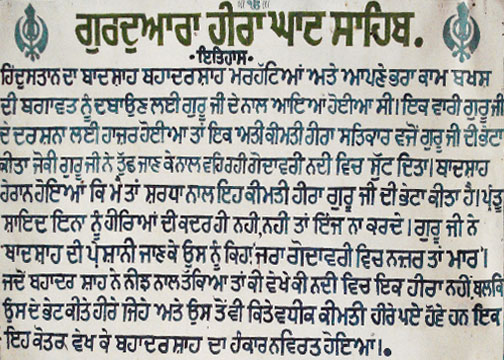 ਗੁਰਦੁਆਰਾ ਹੀਰਾ ਘਾਟ ਸਾਹਿਬ.
·ਇਤਿਹਾਸ·
ਹਿੰਦੁਸਤਾਨ ਦਾ ਬਾਦਸ਼ਾਹ ਬਹਾਦਰ ਸ਼ਾਹ ਮਰਹੱਟਿਆਂ ਅਤੇ ਆਪਣੇ ਭਰਾ ਕਾਮ ਬਖਸ਼
ਦੀ ਬਗਾਵਤ ਨੂੰ ਦਬਾਉਣ ਲਈ ਗੁਰੂ ਜੀ ਦੇ ਨਾਲ ਆਇਆ ਹੋਈਆ ਸੀ। ਇਕ ਵਾਰੀ ਗੁਰੂ ਜੀ
ਦੇ ਦਰਸ਼ਨਾ ਲਈ ਹਾਜ਼ਰ ਹੋਈਆ ਤਾਂ ਇਕ ਅਤੀ ਕੀਮਤੀ ਹੀਰਾ ਸਤਿਕਾਰ ਵਜੋਂ ਗੁਰੂ ਜੀ ਦੀ ਭੇਟਾ
ਕੀਤਾ ਜੋਕੀ ਗੁਰੂ ਜੀ ਨੇ ਤੁੱਛ ਜਾਣ ਕੇ ਨਾਲ ਵਹਿ ਰਹੀ ਗੋਦਾਵਰੀ ਨਦੀ ਵਿਚ ਸੁੱਟ ਦਿਤਾ। ਬਾਦਸ਼ਾਹ
ਹੈਰਾਨ ਹੋਇਆਂ ਕਿ ਮੈਂ ਤਾਂ ਸ਼ਰਧਾ ਨਾਲ ਇਹ ਕੀਮਤੀ ਹੀਰਾ ਗੁਰੂ ਜੀ ਦੀ ਭੇਟਾ ਕੀਤਾ ਹੈ। ਪ੍ਰੰਤੂ
ਸ਼ਾਇਦ ਇਨਾ ਨੂੰ ਹੀਰਿਆਂ ਦੀ ਕਦਰ ਹੀ ਨਹੀ, ਨਹੀਂ ਤਾਂ ਇੰਜ ਨਾ ਕਰਦੇ। ਗੁਰੂ ਜੀ ਨੇ
ਬਾਦਸ਼ਾਹ ਦੀ ਪ੍ਰੇਸ਼ਾਨੀ ਜਾਣ ਕੇ ਉਸ ਨੂੰ ਕਿਹਾ, 'ਜਰਾ ਗੋਦਾਵਰੀ ਵਿਚ ਨਜ਼ਰ ਤਾਂ ਮਾਰ'।
ਜਦੋਂ ਬਹਾਦਰ ਸ਼ਾਹ ਨੇ ਨੀਝ ਨਾਲ ਤੱਕਿਆ ਤਾਂ ਕੀ ਵੇਖੇ ਕੀ ਨਦੀ ਵਿਚ ਇਕ ਹੀਰਾ ਨਹੀਂ, ਬਲਕਿ
ਉਸ ਦੇ ਭੇਟ ਕੀਤੇ ਹੀਰੇ ਜਿਹੇ ਅਤੇ ਉਸ ਤੋਂ ਵੀ ਕਿਤੇ ਵਧੀਕ ਕੀਮਤੀ ਹੀਰੇ ਪਏ ਹੋਏ ਹਨ ਇਕ
ਇਹ ਕੋਤਕ ਵੇਖ ਕੇ ਬਹਾਦਰ ਸ਼ਾਹ ਦਾ ਹੰਕਾਰ ਨਵਿਰਤ ਹੋਇਆ।.